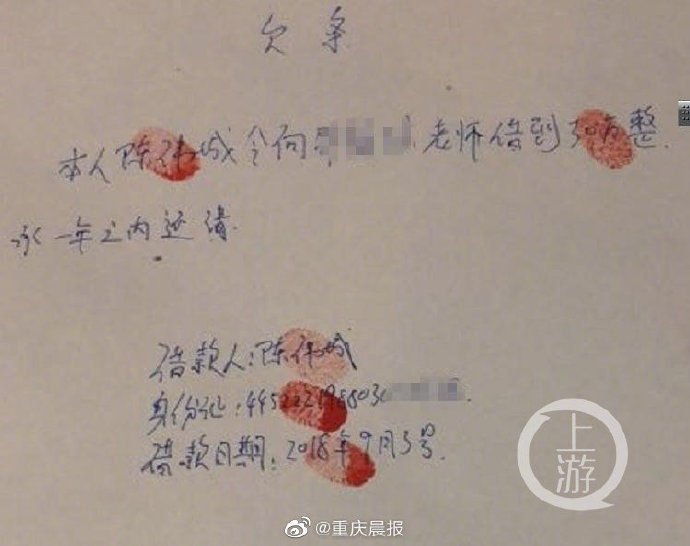 欠条
本人陈伟城今向 老师借到30万整.
承一年之内还清.
借款人:陈伟城
身份证:445222198803
借款日期:2018年9月5号.
上游
@重庆晨报